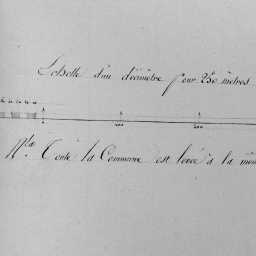 Echelle d'un décimètre pour 250 mètres
0 100 200
Nta. Toute la Commune est levée à la même